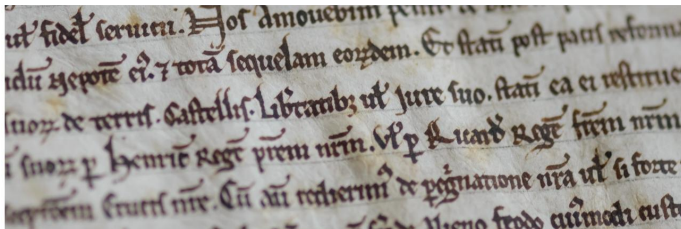 ul' fidel' seruiti. Nos amouebim
Nepotē ei'. ⁊ totā sequelam eorꝝdem. Et stati post pacis reforma
suorꝝ de terris. Castellis. Libtatibꝫ ul' Jure suo. stati ea ei restitue
suorꝝ ꝑ Henric Regē prēm nrm. Vl' ꝑ Ricard Regē frēm nrm
Crucis nre. Cū aū redierim' de ꝑegnatione nra ul' si forte
feodo cui'modi